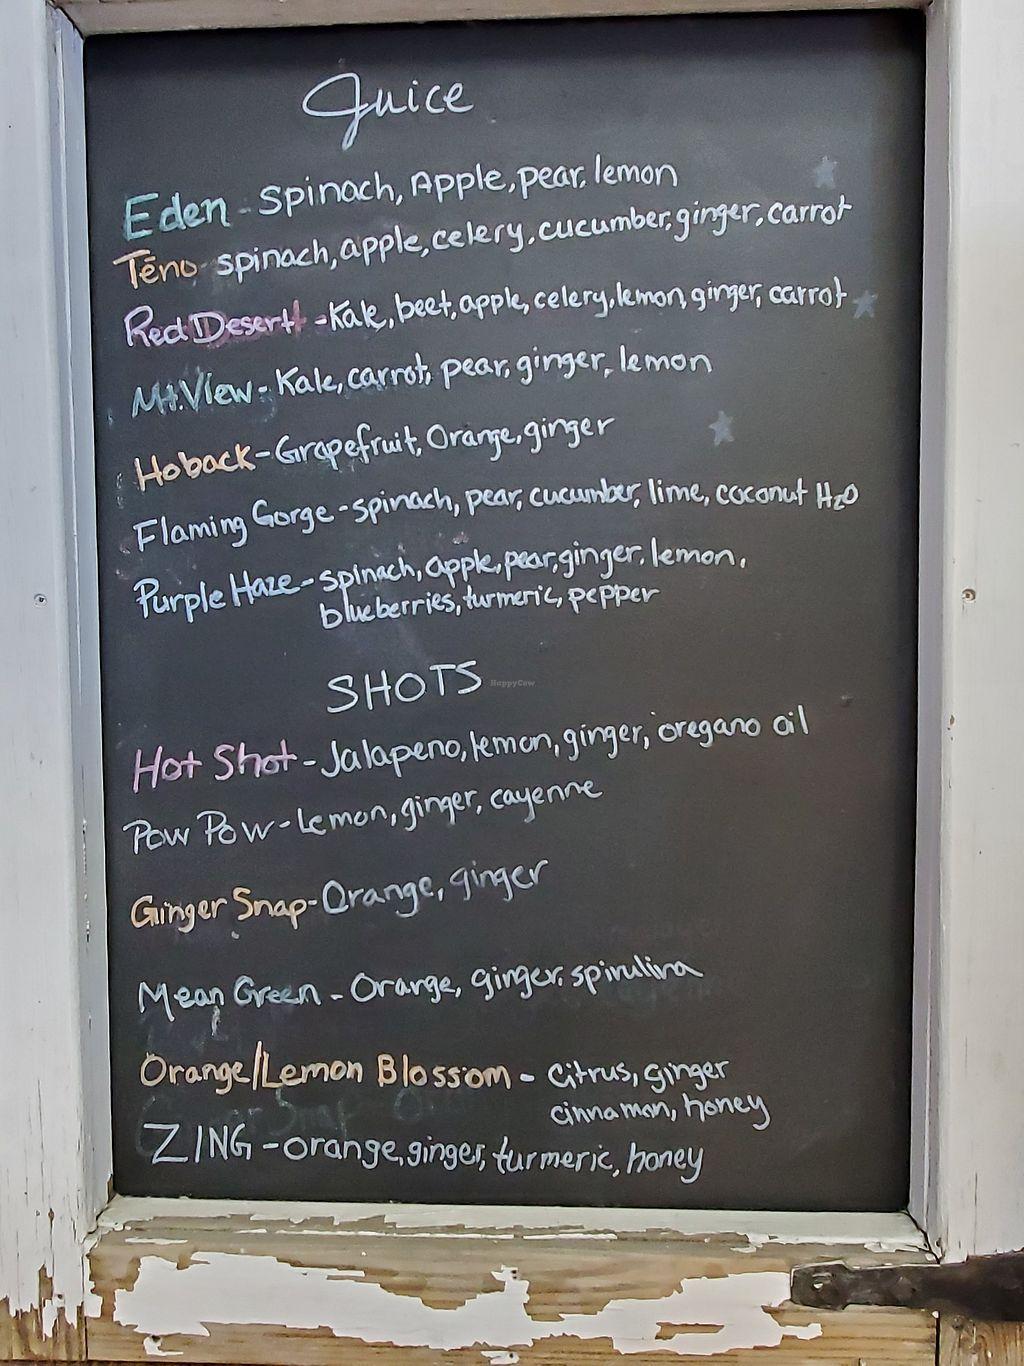 Juice
Eden - spinach, Apple, pear, lemon
Tēno - spinach, apple, celery, cucumber, ginger, carrot
Red Desert - Kale, beet, apple, celery, lemon, ginger, carrot
Mt. View - Kale, carrot, pear, ginger, lemon
Hoback - Grapefruit, Orange, ginger
Flaming Gorge - spinach, pear, cucumber, lime, coconut H2O
Purple Haze - spinach, apple, pear, ginger, lemon,
blueberries, turmeric, pepper
SHOTS
HappyCow
Hot Shot - Jalapeno, lemon, ginger, oregano oil
Pow Pow - Lemon, ginger, cayenne
Ginger Snap - Orange, ginger
Mean Green - Orange, ginger, spirulina
Orange/Lemon Blossom - citrus, ginger
cinnamon, honey
ZING - orange, ginger, turmeric, honey